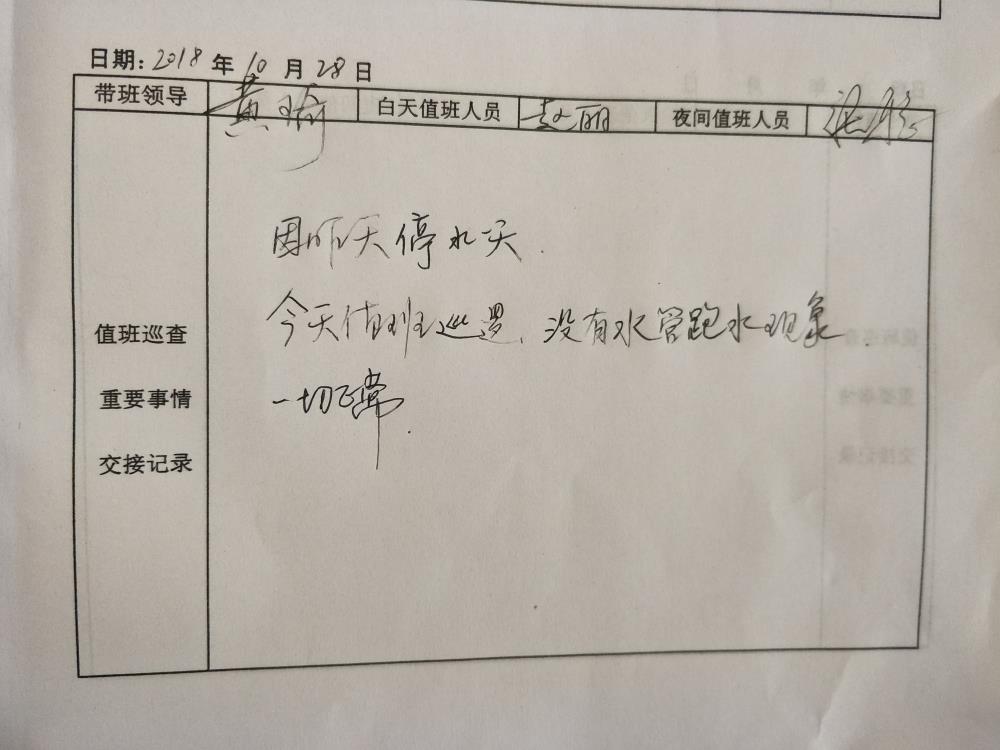 日期：2018年10月28日
带班领导 黄琦 白天值班人员 赵丽 夜间值班人员
因昨天停水一天.
今天值班巡逻，没有水管跑水现象.
一切正常.
值班巡查
重要事情
交接记录